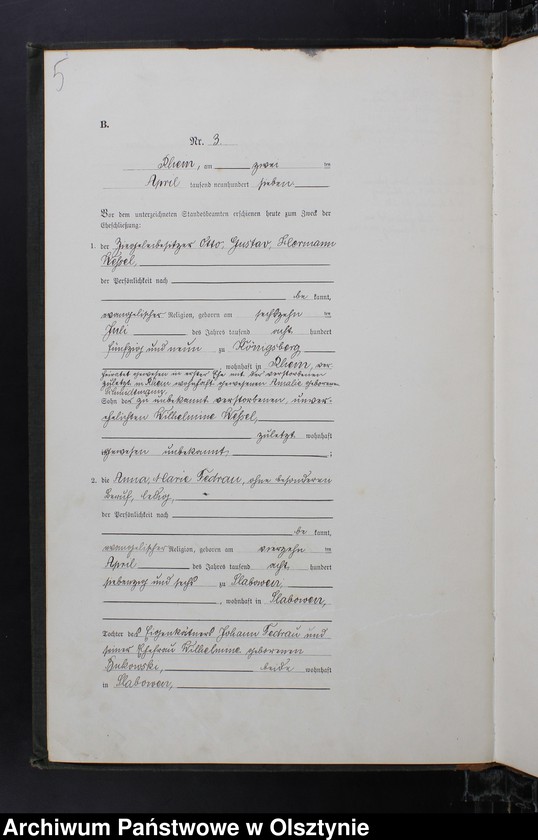 5
B.
Nr. 3
Rhein, am zwei ten
April tausend neunhundert sieben
Vor dem unterzeichneten Standesbeamten erschienen heute zum Zweck der
Eheschließung:
1. der Ziegeleibesitzer Otto, Gustav, Hermann
Kessel,
der Persönlichkeit nach
be kannt,
evangelischer Religion, geboren am sechszehn ten
Juli des Jahres tausend acht hundert
fünfzig und neun zu Königsberg
wohnhaft in Rhein, ver
heiratet gewesen in erster Ehe mit der verstorbenen
zuletzt in Rhein wohnhaft gewesenen Amalie geborene
Sohn der zu unbekannt verstorbenen, unver-
ehelichten Wilhelmine Kessel,
zuletzt wohnhaft
gewesen unbekannt. ;
2. die Anna, Marie Pedrau, ohne besonderen
Beruf, ledig,
der Persönlichkeit nach
be kannt,
evangelischer Religion, geboren am vierzehn ten
April des Jahres tausend acht hundert
siebenzig und sechs zu Slabowen,
, wohnhaft in Slabowen,
Tochter des Eigenkätners Johann Pedrau und
seiner Ehefrau Wilhelmine geborenen
beide wohnhaft
in Slabowen,
Archiwum Państwowe w Olsztynie